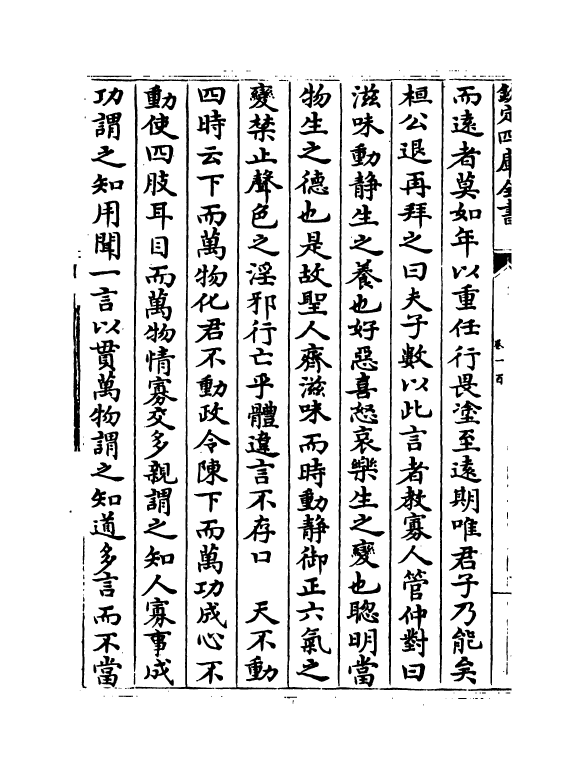 欽定四庫全書
卷一百
而遠者莫如年以重任行畏塗至遠期唯君子乃能矣
桓公退再拜之曰夫子數以此言者教寡人管仲對曰
滋味動靜生之養也好惡喜怒哀樂生之變也聰明當
物生之德也是故聖人齊滋味而時動靜御正六氣之
變禁止聲色之淫邪行亡乎體違言不存口　天不動
四時云下而萬物化君不動政令陳下而萬功成心不
動使四肢耳目而萬物情寡交多親謂之知人寡事成
功謂之知用聞一言以貫萬物謂之知道多言而不當